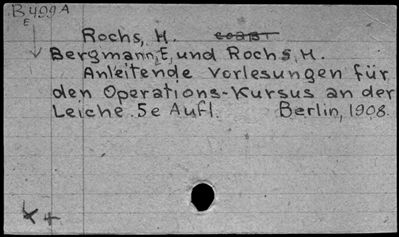 B499A
E
Rochs, H.
Bergmann, E, und Rochs, H.
Anleitende Vorlesungen für
den Operations-Kursus an der
Leiche. 5e Aufl. Berlin, 1908.